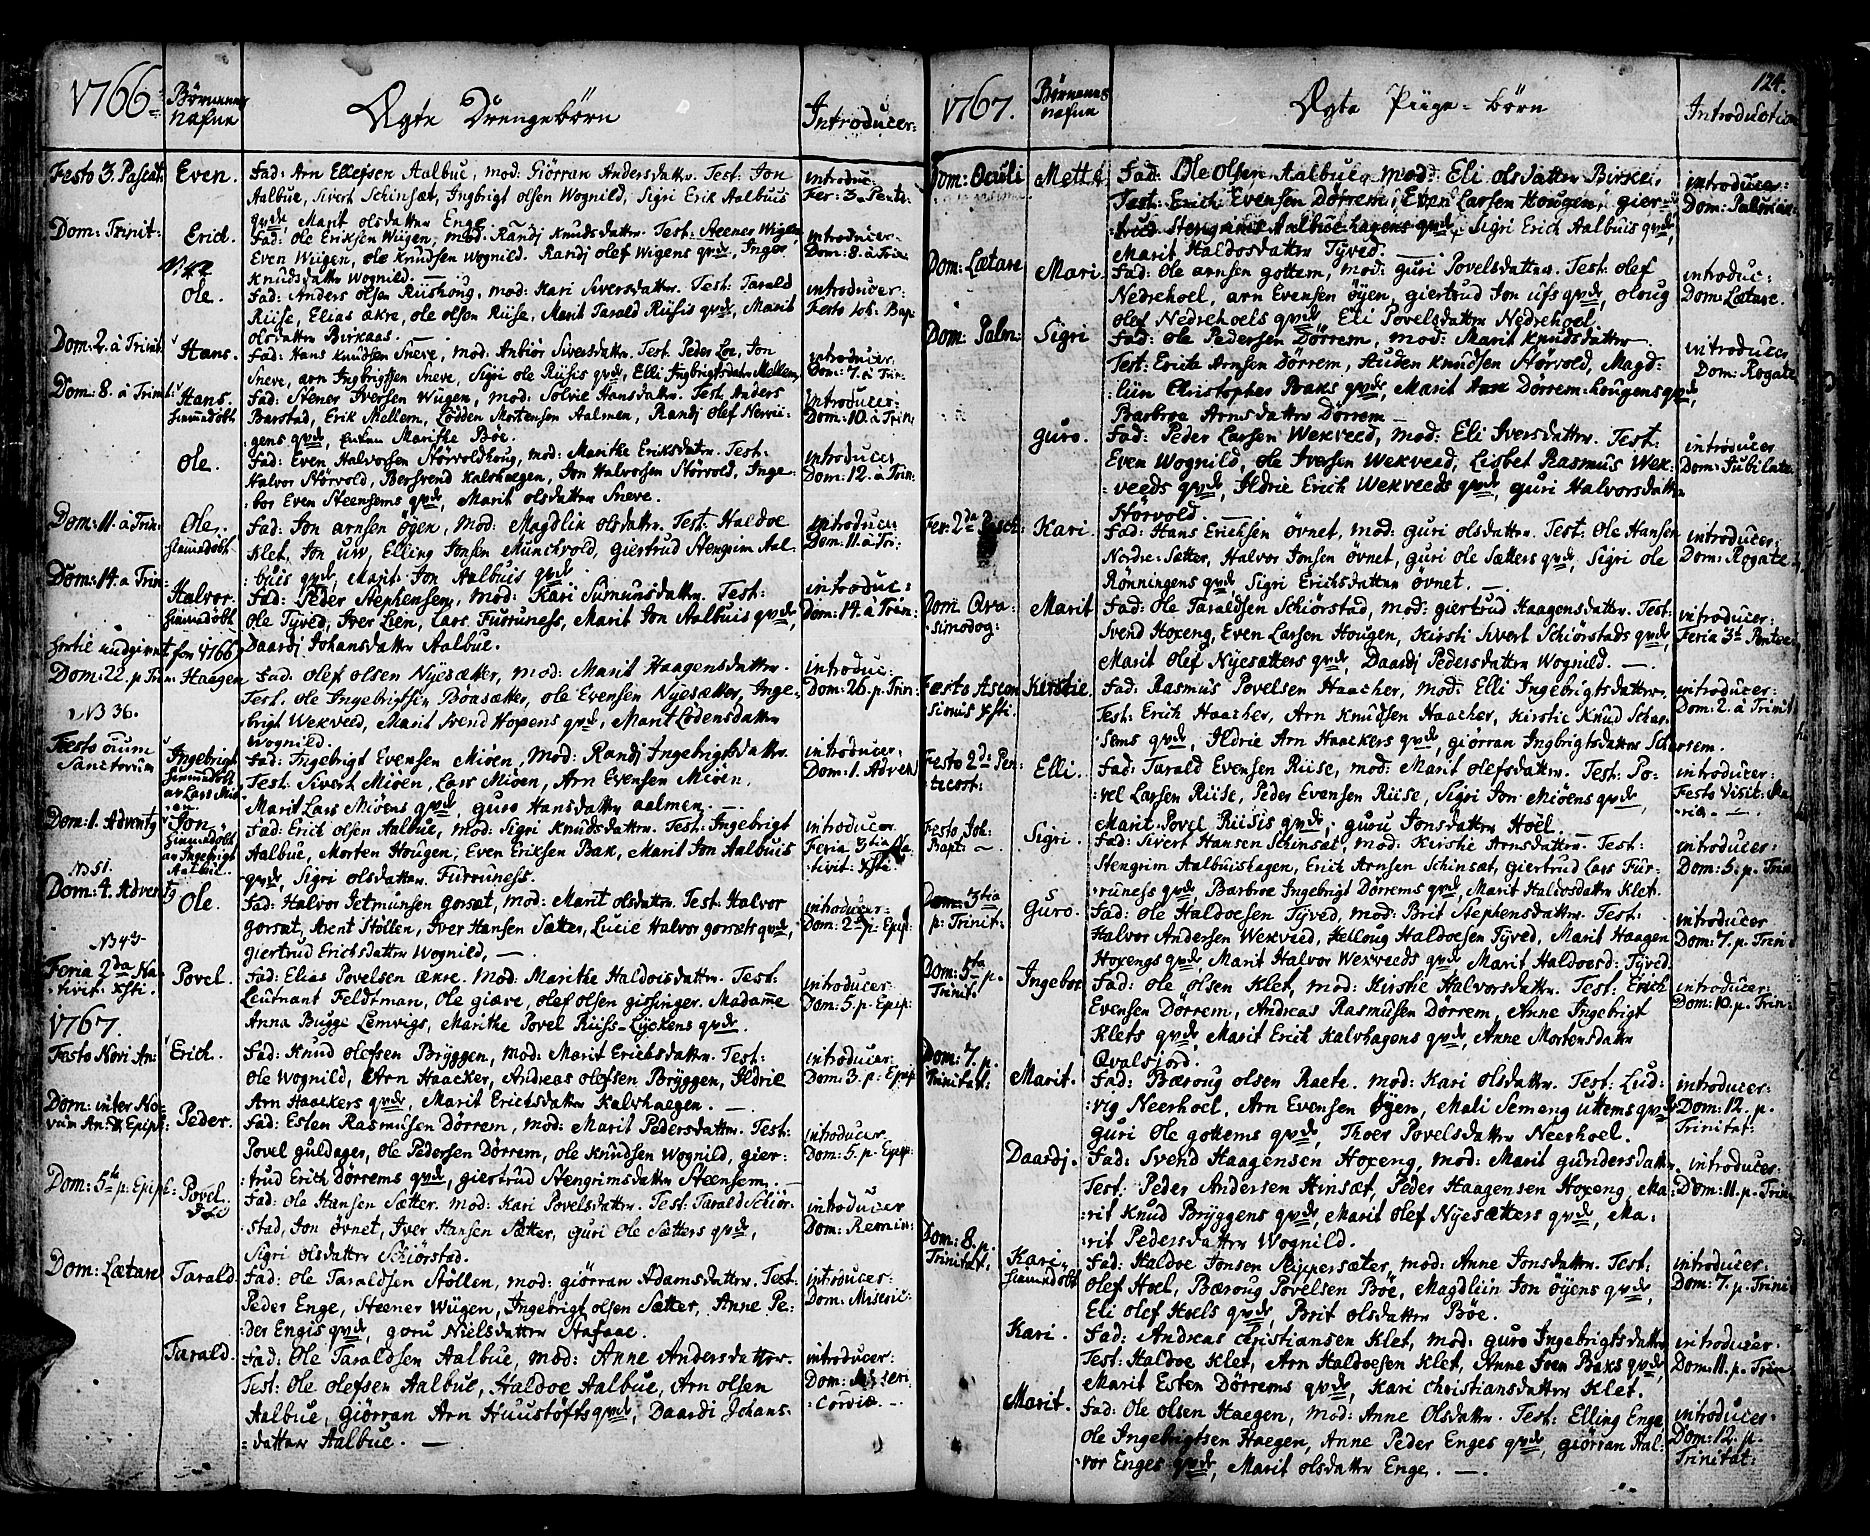 1766
Børnenes Nafne
Ægte Drengebørn
Introducer:
Festo 3. Pascat: Even. Fad: Arn Ellefsen Aalbue, mod: Giørran Andersdattr. Test: Jon
Aalbue, Sivert Schinsæt, Ingbrigt olsen Wognild, Sigri Erik Aalbuis
qvde, Marit olsdatter Enge
introduc:
Fer: 3. Pente:
Dom: Trinit: Erich. Fad: Ole Eriksen Wiigen, mod: Randj Knudsdattr. Test: Steener Wigen,
Even Wiigen, ole Knudsen Wognild. Randj olef Wigens qvde, Inger
Knudsdattr Wognild.
introducer:
Dom: 8. a Trin:
N: 42
Ole. Fad: Anders olsen Riishoug, mod: Kari Siversdattr. Test: Tarald
Riise, Elias ækre, ole olsen Riise, Marit Tarald Riisis qvde, Marit
olsdatter Birkaas.
introducer:
Festo Joh: Bap:
Dom: 2. a Trinit: Hans. Fad: Hans Knudsen Sneve, mod: Anbiør Siversdattr. Test: Peder Loe, Jon
Sneve, arn Ingbrigtsen Sneve, Sigri ole Riisis qvde, Elli Ingbrigtsdattr Mellem.
introducer.
Dom: 7. a Trin:
Dom: 8. a Trinit: Hans. hiemmedøbt Fad: Stener Iversen Wiigen, mod: Solvie Hansdattr. Test: Anders
Barstad, Erik Mellem, Lodden Mortensen Aalmen, Randj Olef Nerwi-
gens qvde, Marithe Böe.
introducer:
Dom: 10. a Trin:
Ole. Fad: Even Halvorsen Störvoldhoug, mod: Marithe Eriksdattr. Test:
Halvor Störvold, Bersvend Kalvhagen, Jon Halvorsen Störvold, Inge-
bor Even Steensems qvde, Marit olsdatter Sneve.
introducer
Dom: 12. a Trin:
Dom: 11. a Trin: Ole. hiemmedøbt Fad: Jon arnsen øyen, mod: Magdlin olsdattr. Test: Haldoe
Klet, Jon uw, Elling Jonsen Munckvold, Giertrud Stengrim Aal-
buis qvde, Marit Jon Aalbuis qvde
introduc:
Dom: 11. a Tri:
Dom: 14. a Trin: Halvor. hiemmedøbt Fad: Peder Stephensen, mod: Kari Simunsdattr. Test:
Ole Tyved, Iver Lien, Lars Furruness, Marit Jon Aalbuis qvde,
Daardj Johansdatter Aalbue.
introduc:
Dom: 14. a Trin:
for 1766
Dom: 22. p Trin: Haagen Fad: olef olsen Nyesætter, mod: Marit Haagensdattr.
Test. Ole Ingebrigtsen Böasætter, ole Evensen Nyesætter, Inge-
brigt Wekveed, Marit Svend Hoxens qvde, Marit Lodensdattr
Wognild.
introduc:
Dom: 26. p. Trin:
N 36.
Festo oium Sanctorum Ingebrigt hiemmedøbt av Lars Miöen Fad: Ingebrigt Evensen Miöen, mod: Randj Ingebrigtsdattr.
Test: Sivert Miöen, Lars Miöen, Arn Evensen Miöen,
Marit Lars Miöens qvde, guro Hansdatter aalmen.
introducer:
Dom: 1. Advent
Dom: 1. Advent Jon hiemmedøbt av Ingebrigt Aalbue Fad: Erich olsen Aalbue, mod: Sigri Knudsdattr. Test: Ingebrigt
Aalbue, Morten Hougen, Even Eriksen Bak, Marit Jon Aalbuis
qvde, Sigri olsdatter Furruness.
introducer.
Feria 3tia Na-
tivit. Xsti.
N 51.
Dom: 4. Advent Ole. Fad: Halvor Jetmunsen gorsæt, mod: Marit olsdattr. Test: Halvor
gorsæt, Arent Stöllen, Iver Hansen Sætter, Lucie Halvor gorsets qvde,
Giertrud Erichsdatter Wognild.
introducer:
Dom: 2 p: Epip:
N 43
Feria 2da Na-
tivit. Xsti. Povel. Fad: Elias Povelsen ækre. mod: Marithe Haldoisdattr. Test:
Leutnant Feldtman, Ole giære, olef olsen gissinger. Madame
Anna Bugge Lemvigs, Marithe Povel Riiss-Lyckens qvde.
introducer:
Dom: 5. p: Epip:
1767.
Festo Novi An: Erich. Fad: Knud olefsen Bryggen, mod: Marit Erichsdattr. Test:
Ole Wognild, Arn Haacker, Andreas olefsen Bryggen, Ildrie
Arn Haackers qvde, Marit Erichsdatter Kalvhaegen.
introducer
Dom: 3. p: Epip
Dom: inter No-
vum An: & Epiph: Peder. Fad: Esten Rasmusen Dörrem, mod: Marit Pedersdattr. Test:
Povel guldager, Ole Pedersen Dörrem, ole Knudsen Wognild, gier-
trud Erich Dörrems qvde, giertrud Stengrimsdattr Steensem.
introducer
Dom: 5. p. Epip:
Dom: 5te p: Epiph: Povel. Fad: Ole Hansen Sætter. mod: Kari Povelsdattr. Test: Tarald Schiör-
stad, Jon övnet, Iver Hansen Sætter, Guri Ole Sætters qvde,
Sigri olsdattr Schiörstad.
introducer
Dom: Remin:
Dom: Lætare Tarald Fad: Ole Taraldsen Stöllen, mod: giörran Adamsdattr. Test:
Peder Enge, Steener Wiigen, Ingebrigt olsen Sætter, Anne Pe-
der Engis qvde, goru Nielsdatter Stafaae.
introducer:
Dom: Miseric:
Tarald. Fad: Ole Taraldsen Aalbue, mod: Anne Andersdattr.
Test: Ole olefsen Aalbue, Haldoe Aalbue, Arn olsen
Aalbue, Giörran Arn Huustöfts qvde, Daardi Johans-
datter Aalbue.
introducer:
Dom: Miseri
cordiæ.
1767.
Børnenes Nafne
Ægte Piige-børn
124.
Introduction
Dom: Oculi Mette. Fad: Ole Olsen Aalbue, mod: Eli olsdatter Birke,
Test: Erich Evensen Dörrem, Even Larsen Hougen, gier-
trud Stengrims Aalbuehagens qvde, Sigri Erich Aalbuis qvde,
Marit Haldosdatter Tyved.
introducer:
Dom: Palmar:
Dom: Lætare Mari. Fad: Ole arnsen gottem, mod: guri Povelsdattr. Test: olef
Nedrehoel, arn Evensen øyen, giertrud Jon uss qvde, oloug
olef Nedrehoels qvde, Eli Povelsdattr Nedrehoel.
introduc:
Dom: Lætare.
Dom: Palm: Sigri Fad: Ole Pedersen Dörrem, mod: Marit Knudsdattr
Test: Erich Arnsen Dörrem, Auden Knudsen Störvold, Magd-
liin Christopher Baks qvde, Marit Dorrem-Lougens qvde,
Barbroe Arnsdatter Dörrem
introducer
Dom: Rogate
Guro. Fad: Peder Larsen Wekveed, mod: Eli Iversdattr. Test:
Even Wognild, ole Iversen Wekveed, Lisbet Rasmus Wek-
veeds qvde, Ildrie Erich Wekveeds qvde, Guri Halvorsdattr
Störvold
introducer
Dom: Jubilate.
Fer: 2da Pasch: Kari Fad: Hans Erichsen övnet, mod: Guri olsdattr. Test: Ole Hansen
Nordre-Sætter, Halvor Jonsen övnet, Guri ole Sætters qvde, Sigri ole
Rønningens qvde, Sigri Erichsdatter övnet.
introducer:
Dom: Rogate
Dom. Qva-
simodog: Marit Fad: Ole Taraldsen Schiörstad, mod: giertrud Haagensdattr. Test:
Svend Hoxeng, Even Larsen Hougen, Kirsti Sivert Schiörstads qvde,
Marit olef Nyesætters qvde, Daardj Pedersdattr Wognild.
introducer:
Feria 3a Pentec:
Festo Ascen-
sionis Xsti. Kirstie. Fad: Rasmus Povelsen Haacher, mod: Elli Ingebrigtsdattr.
Test: Erich Haacher, Arn Knudsen Haacher, Kirstie Knud Schar-
sems qvde, Ildrie Arn Haackers qvde, giörran Ingbrigtsdattr Scharsem.
introducer:
Dom: 2. a Trinit:
Festo 2da Pen-
tecost: Elli. Fad: Tarald Evensen Riise, mod: Marit olefsdattr. Test: Po-
vel Larsen Riise, Peder Evensen Riise, Sigri Jon Miöens qvde,
Marit Povel Riisis qvde, guru Jonsdatter Hoël.
introducer:
Festo Visit: Ma-
riæ.
Festo Joh:
Bapt: Sigri. Fad: Sivert Hansen Schinsæt, mod: Kirstie Arnsdattr. Test:
Stengrim Aalbuishagen, Erich Arnsen Schinsæt, Giertrud Lars Fur-
runess qvde, Barbroe Ingebrigt Dörrems qvde, Marit Haldosdattr Klet.
introducer:
Dom: 5. p. Trinit
Dom: 3tia
p: Trinit: Guro. Fad: Ole Haldoesen Tyved, mod: Brit Stephensdattr. Test:
Halvor Andersen Wekveed, Kelloug Haldoesen Tyved, Marit Haagen
Hoxengs qvde, Marit Halvor Wekveeds qvde Marit Haldoesd: Tyved.
introducer
Dom: 7. p. Trinit
Dom: 5ta p.
Trinit: Ingebor Fad: Ole olsen Klet, mod: Kirstie Halvorsdattr. Test: Erich
Evensen Dörrem, Andreas Rasmusen Dörrem, Anne Ingebrigt
Klets qvde, Marit Erich Kalvhagens qvde, Anne Mortensdattr
Qvalsjord.
introducer:
Dom: 10. p. Trin:
Dom: 7. p.
Trinitat: Marit. Fad: Bæroug olsen Raete. mod: Kari olsdattr. Test: Lud-
vig Neerhoel, Arn Evensen øyen, Mali Semeng uttems qvde
guri Ole gottems qvde, Thoer Povelsdattr Neerhoel.
introducer:
Dom: 12. p.
Trinitat:
Daardj. Fad: Svend Haagensen Hoxeng, mod: Marit gundersdattr.
Test: Peder Andersen Hinsæt, Peder Haagensen Hoxeng, Ma-
rit Knud Bryggens qvde, Marit olef Nyesætters qvde, Ma-
rit Pedersdattr Wognild.
introducer:
Dom: 11. p. Trin
Dom: 8. p.
Trinitat. Kari. hiemmedøbt Fad: Haldoe Jonsen Skippersæter, mod: Anne Jonsdattr. Test:
olef Hoel, Bæroug Povelsen Böe, Magdliin Jon öyens qvde,
Eli olef Hoels qvde, Brit olsdatter Böe.
introducer:
Dom: 7. p. Trinit
Kari. Fad: Andreas Christiansen Klet, mod: guro Ingebrigtsdattr
Test: Haldoe Klet, Arn Haldoesen Klet, Anne Iven Baks qvde,
Marit Esten Dörrems qvde, Kari Christiansdatter Klet.
introducer:
Dom: 11. p. Trin
Marit. Fad: Ole olsen Haegen, mod: Anne Olsdattr. Test: Elling Enge
Ole Ingebrigtsen Haegen, Anne Peder Enges qvde, giörran Hal-
vor Enges qvde, Marit olsdattr Enge.
introducer:
Dom: 12. p.
Trinitat: